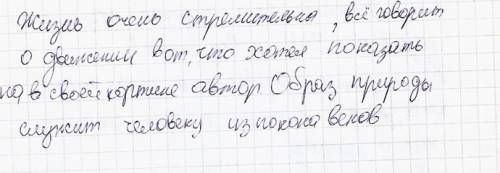 Жизнь очень стремительна, всё говорит
о движении вот, что хотел показать
на в своей картине автор Образ природы
служит человеку испокона веков